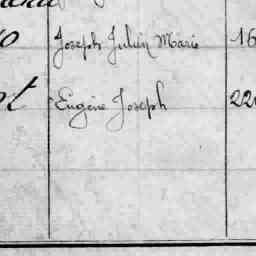 o Joseph Julien Marie 16
ot Eugène Joseph 22